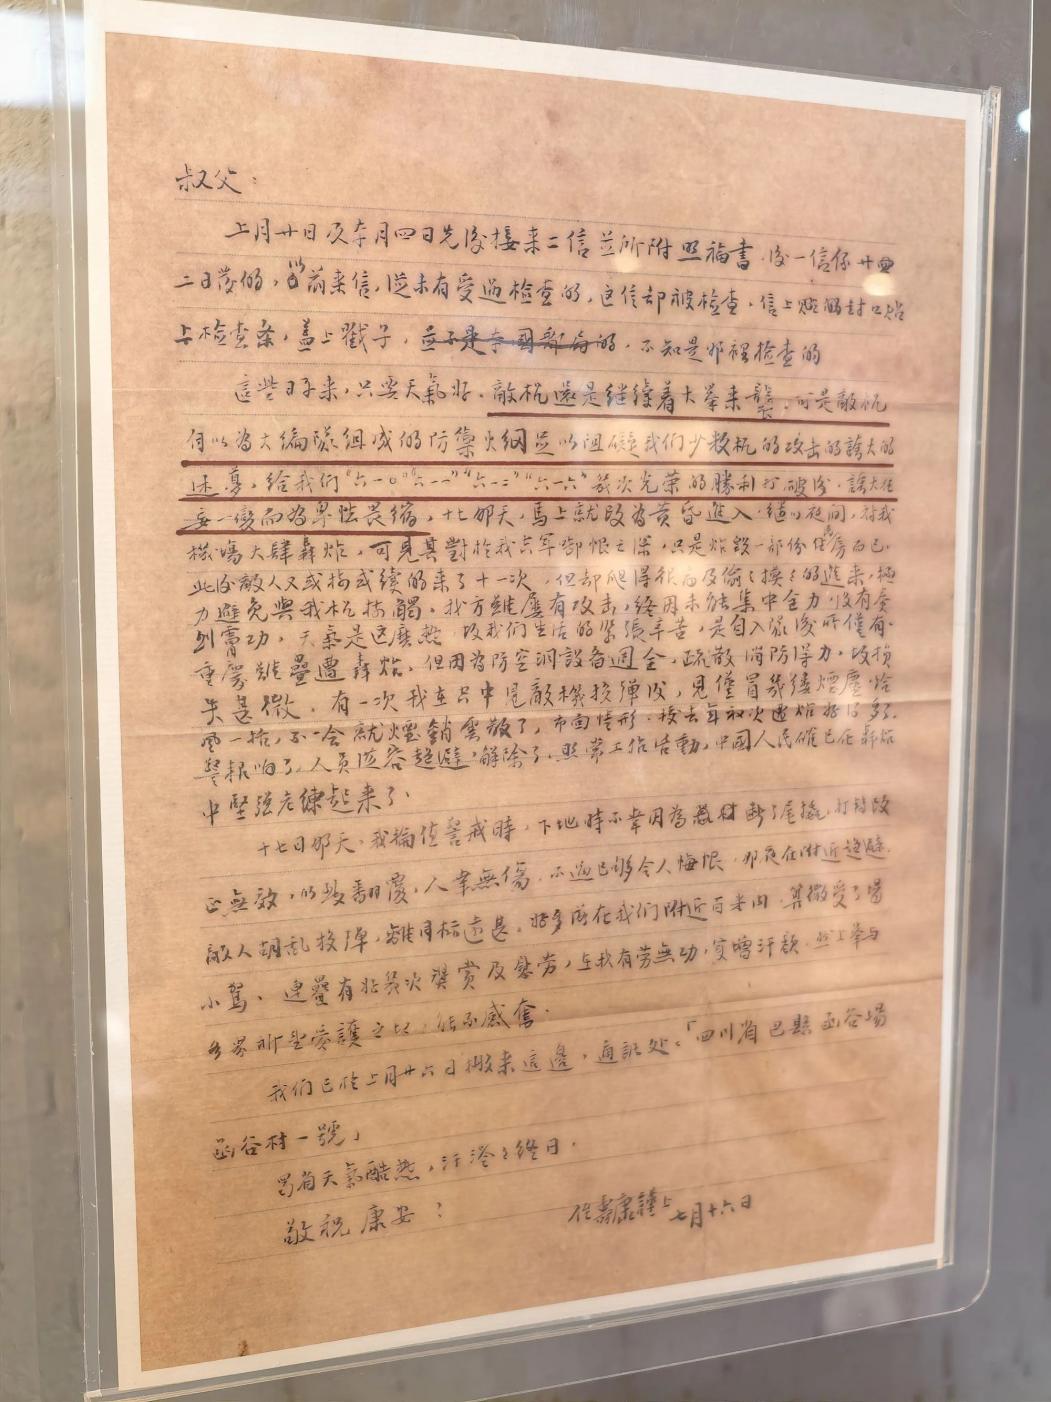 叔父：
上月廿日及本月四日先後接来二信並所附照福書．後一信係廿
二日发的，以前来信，從未有受過检查的，这信却被检查，信上端的封口贴
上检查条，盖上戳子，並不是本國郵局的．不知是那裡检查的
這些日子来，只要天氣好．敵机還是继续着大举来襲．可是敵机
何以為大编隊组成的防禦火網足以阻礙我们少数机的攻击的誇大的
迷夢，给我们“六一〇”“六一一”“六一二”“六一六”幾次光荣的勝利打破後．誇大狂
妄一變而為卑怯畏缩，十七那天，馬上就改為黄昏進入．继以夜间，对我
機場大肆轟炸，可見其對於我空军御恨之深，只是炸毁一部份住房而已．
此後敵人又或持或續的来了十一次，但却爬得很高及偷々摸々的進来，極
力避免與我机接觸．我方雖屡有攻击，終因未能集中全力．没有奏
到膚功，天氣是这麽热．故我们生活的緊張辛苦，是自入假後所僅有．
重慶雖疊遭轟炸．但因為防空洞設备週全，疏散消防得力，故损
失甚微．有一次我在空中見敵機投弹後，見僅冒幾缕煙塵．给
風一括，不一会就煙銷雲散了，市面情形．较去年初次遭炸好得多了．
警报响了，人员從容趋避，解除了．照常工作活動，中國人民確已在轟炸
中堅强老練起来了．
十七日那天，我輪值警戒時．下地時不幸因為器材断了尾撬，打转改
正無效，以致翻覆，人幸無傷．不過已够令人悔恨．那夜在附近趋避．
敵人胡乱投弹，離目标遠甚．好多落在我们附近百米内．算微受了場
小驚．連疊有於幾次奬賞及慰劳，在我有劳無功，實增汗颜．然上峯与
各界所望愛護之切．能不感奮．
我们已於上月廿六日搬来這邊，通訊处：「四川省巴縣函谷場
函谷村一號」
蜀省天氣酷热，汗涔々終日．
敬祝康安！
侄壽康謹上 七月十六日